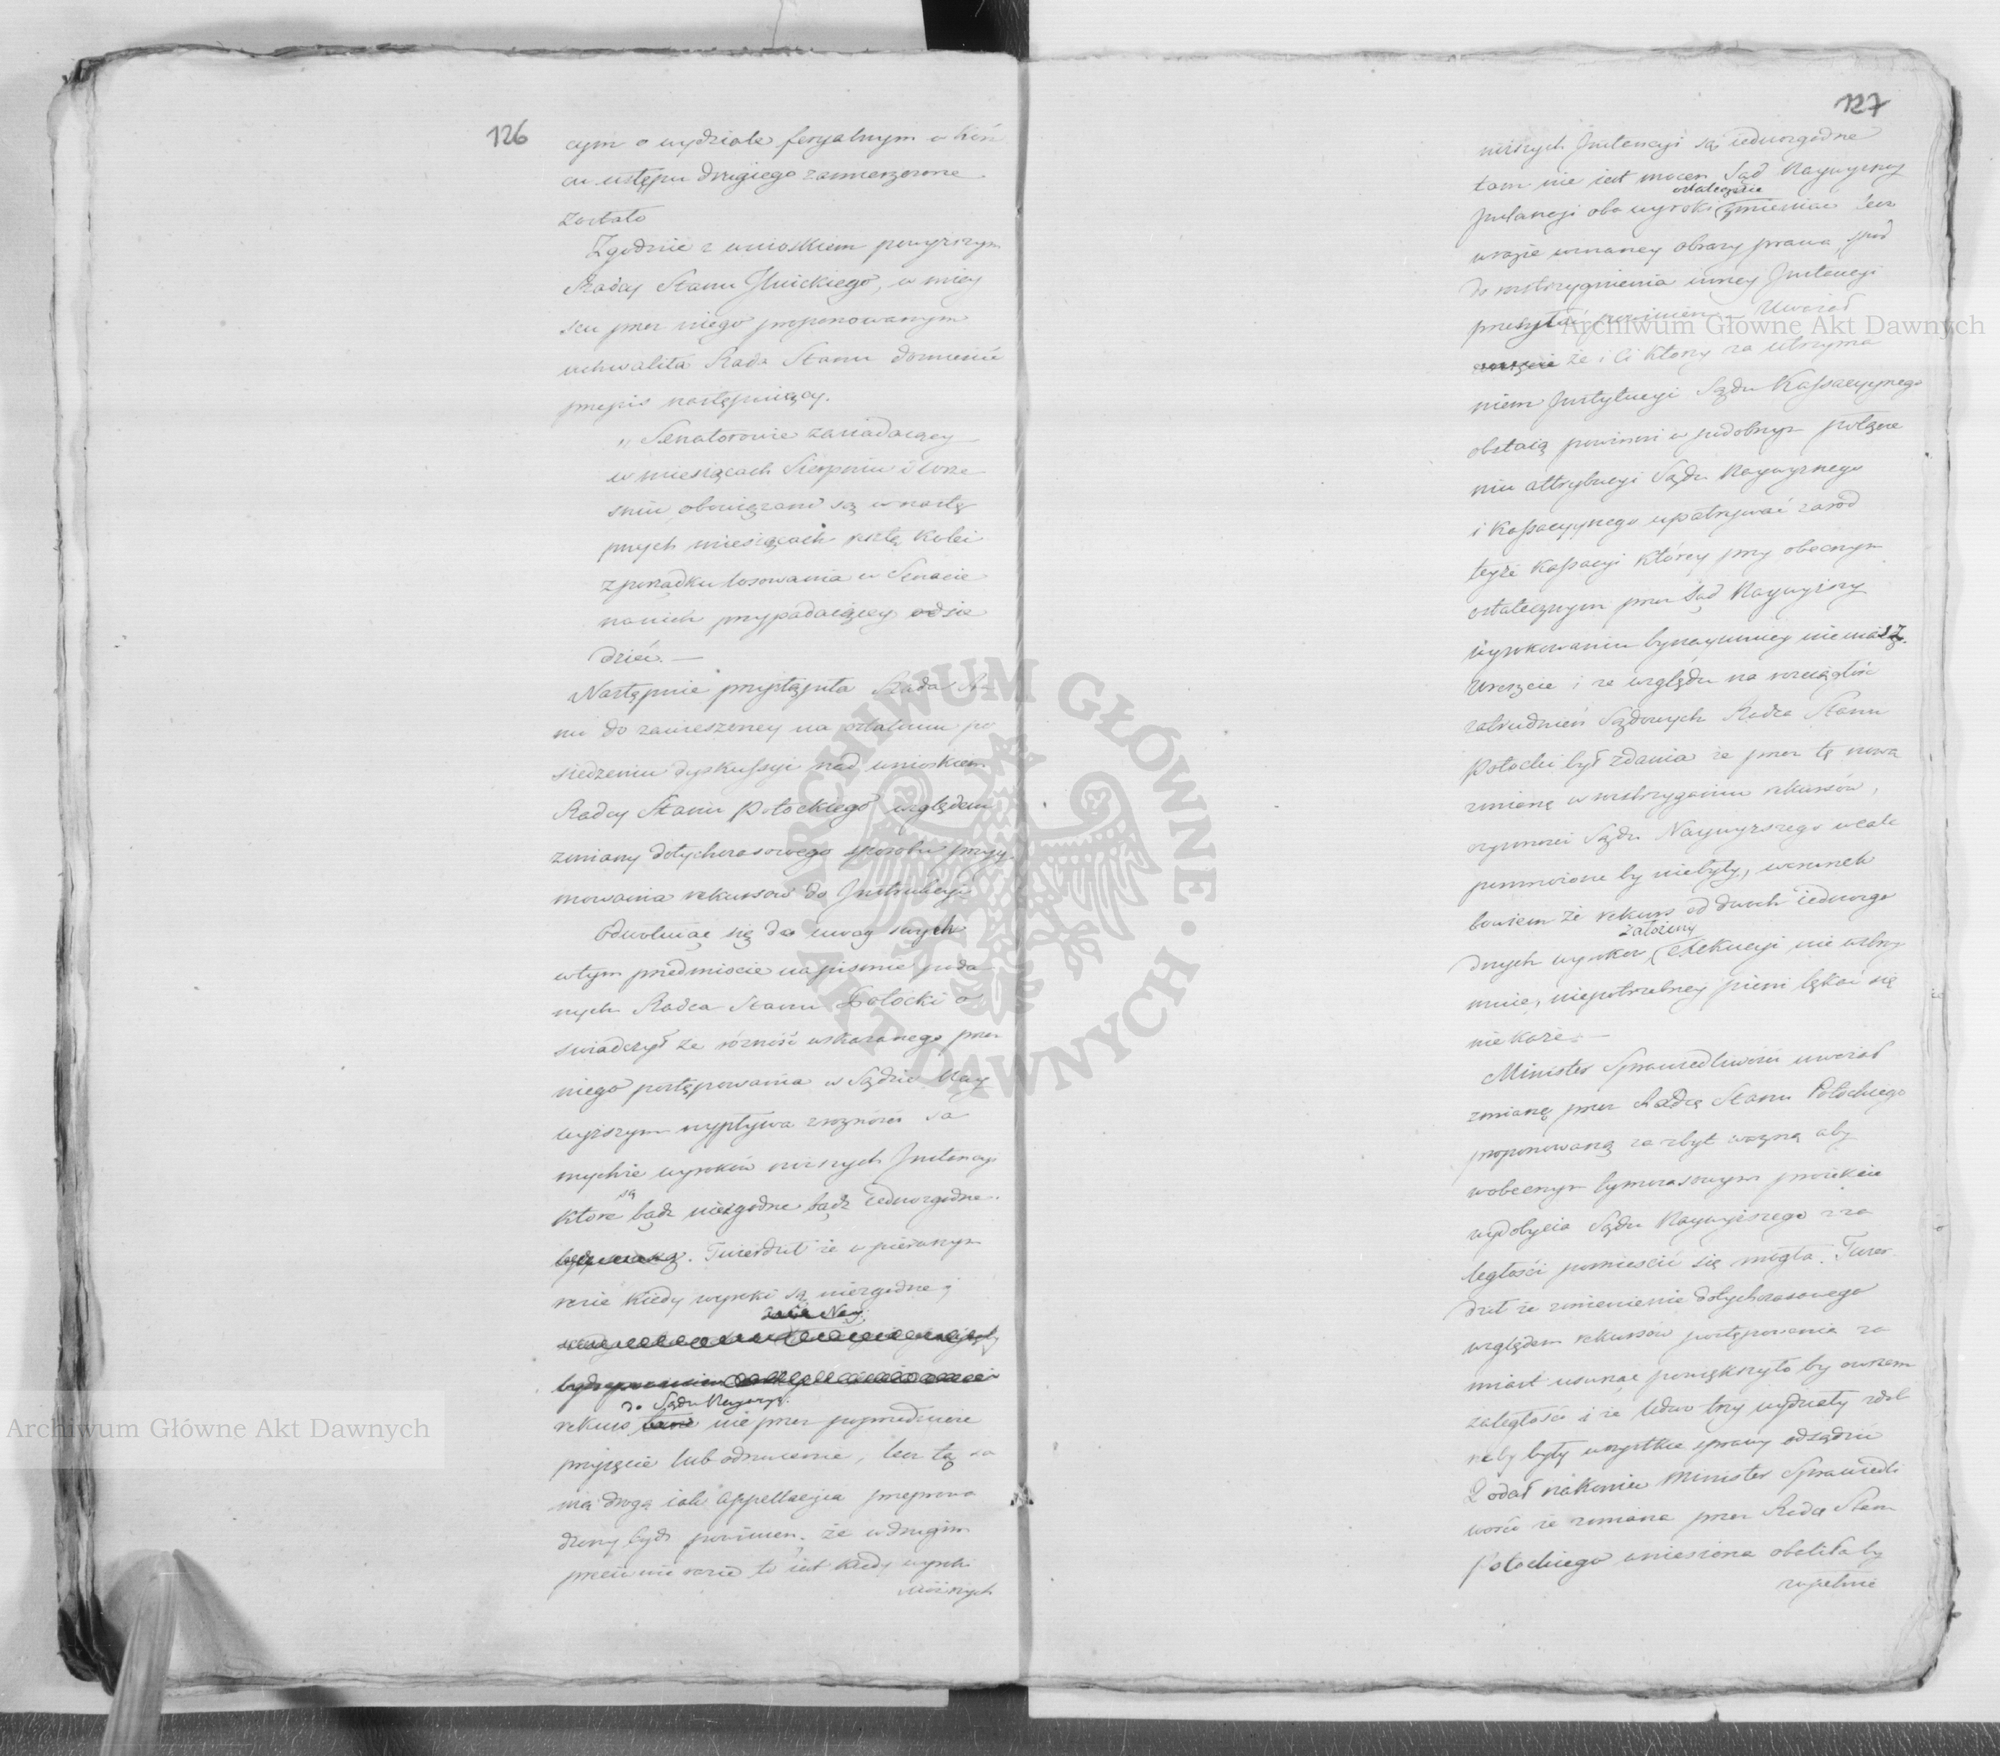 126
cym o wydziale feryalnym w koń
cu ustępu drugiego zamieszczone
zostało
Zgodnie z wnioskiem powyższym
Radcy Stanu Jlnickiego, w miey
scu przez niego proponowanym
uchwaliła Rada Stanu domieścić
przepis następuiący.
„Senatorowie zasiadaiący
w miesiącach Sierpniu i Wrze
śniu obowiązani są w nastę
pnych miesiącach resztę kolei
z porządku losowania w Senacie
na nich przypadaiącey odsie
dzieć. —
Następnie przystąpiła Rada Sta
nu do zawieszoney na ostatniem po
siedzeniu dyskussyi nad wnioskiem
Radcy Stanu Potockiego względem
zmiany dotychczasowego sposobu przyy
mowania rekursów do Instrukcyi
Odwołuiąc się do uwag swych
w tym przedmiocie na pismie poda
nych Radca Stanu Potocki o
świadczył że różność wskazanego przez
niego postępowania w Sądzie Nay
wyższym wypływa z rożności sa
mychże wyroków niższych Instancyi
które są bądź niezgodne bądź iednozgodne.
Twierdził że w pierwszym
razie kiedy wyroki są niezgodne;
do Sądu Naywyż:
rekurs nie przez poprzednicze
przyięcie lub odrzucenie, lecz tą sa
mą drogą iak appellacyia przeprowa
dzony bydź powinien; że w drugim
przeciwnie razie to iest kiedy wyroki
niższych
127
niższych Instancyi są iednozgodne
tam nie iest mocen Sąd Naywyższy
ostatecznie
Instancyi oba wyroki zmieniać lecz
w razie uznaney obrazy prawa, spór
do rozstrzygnienia inney Instancyi
przesyłać powinien. Uważał
że i ci którzy za utrzyma
niem Instytucyi Sądu Kassacyynego
obstaią powinni w podobnym połącze
niu attrybucyi Sądu Naywyższego
i Kassacyynego upatrywać zaród
teyże Kassacyi którey przy obecnym
ostatecznym przez Sąd Naywyższy
wyrokowaniu bynaymniey niemasz.
Wreszcie i ze względu na rozciągłość
zatrudnień Sądowych Radca Stanu
Potocki był zdania że przez tę nową
zmianę w rozstrzyganiu rekursów,
czynności Sądu Naywyższego wcale
pomnożone by niebyły, warunek
bowiem że rekurs od dwoch iednozgo
założony
dnych wyroków exekucyi nie wstrzy
muie, niepotrzebney pieni lękać się
nie każe. —
Minister Sprawiedliwości uważał
zmianę przez Radcę Stanu Potockiego
proponowaną za zbyt ważną aby
w obecnym tymczasowym proiekcie
wydobycia Sądu Naywyższego z za
ległości pomieścić się mogła. Twier
dził że zmienienie dotychczasowego
względem rekursów postępowania za
miast usunąć powiększyło by owszem
zaległości i że ledwo trzy wydziały zdol
neby były wszystkie sprawy odsądzić
Dodał nakoniec Minister Sprawiedli
wości że zmiana przez Radcę Stanu
Potockiego wniesiona obaliłaby
zupełnie
ARCHIWUM GŁÓWNE AKT DAWNYCH
Archiwum Główne Akt Dawnych
Archiwum Główne Akt Dawnych